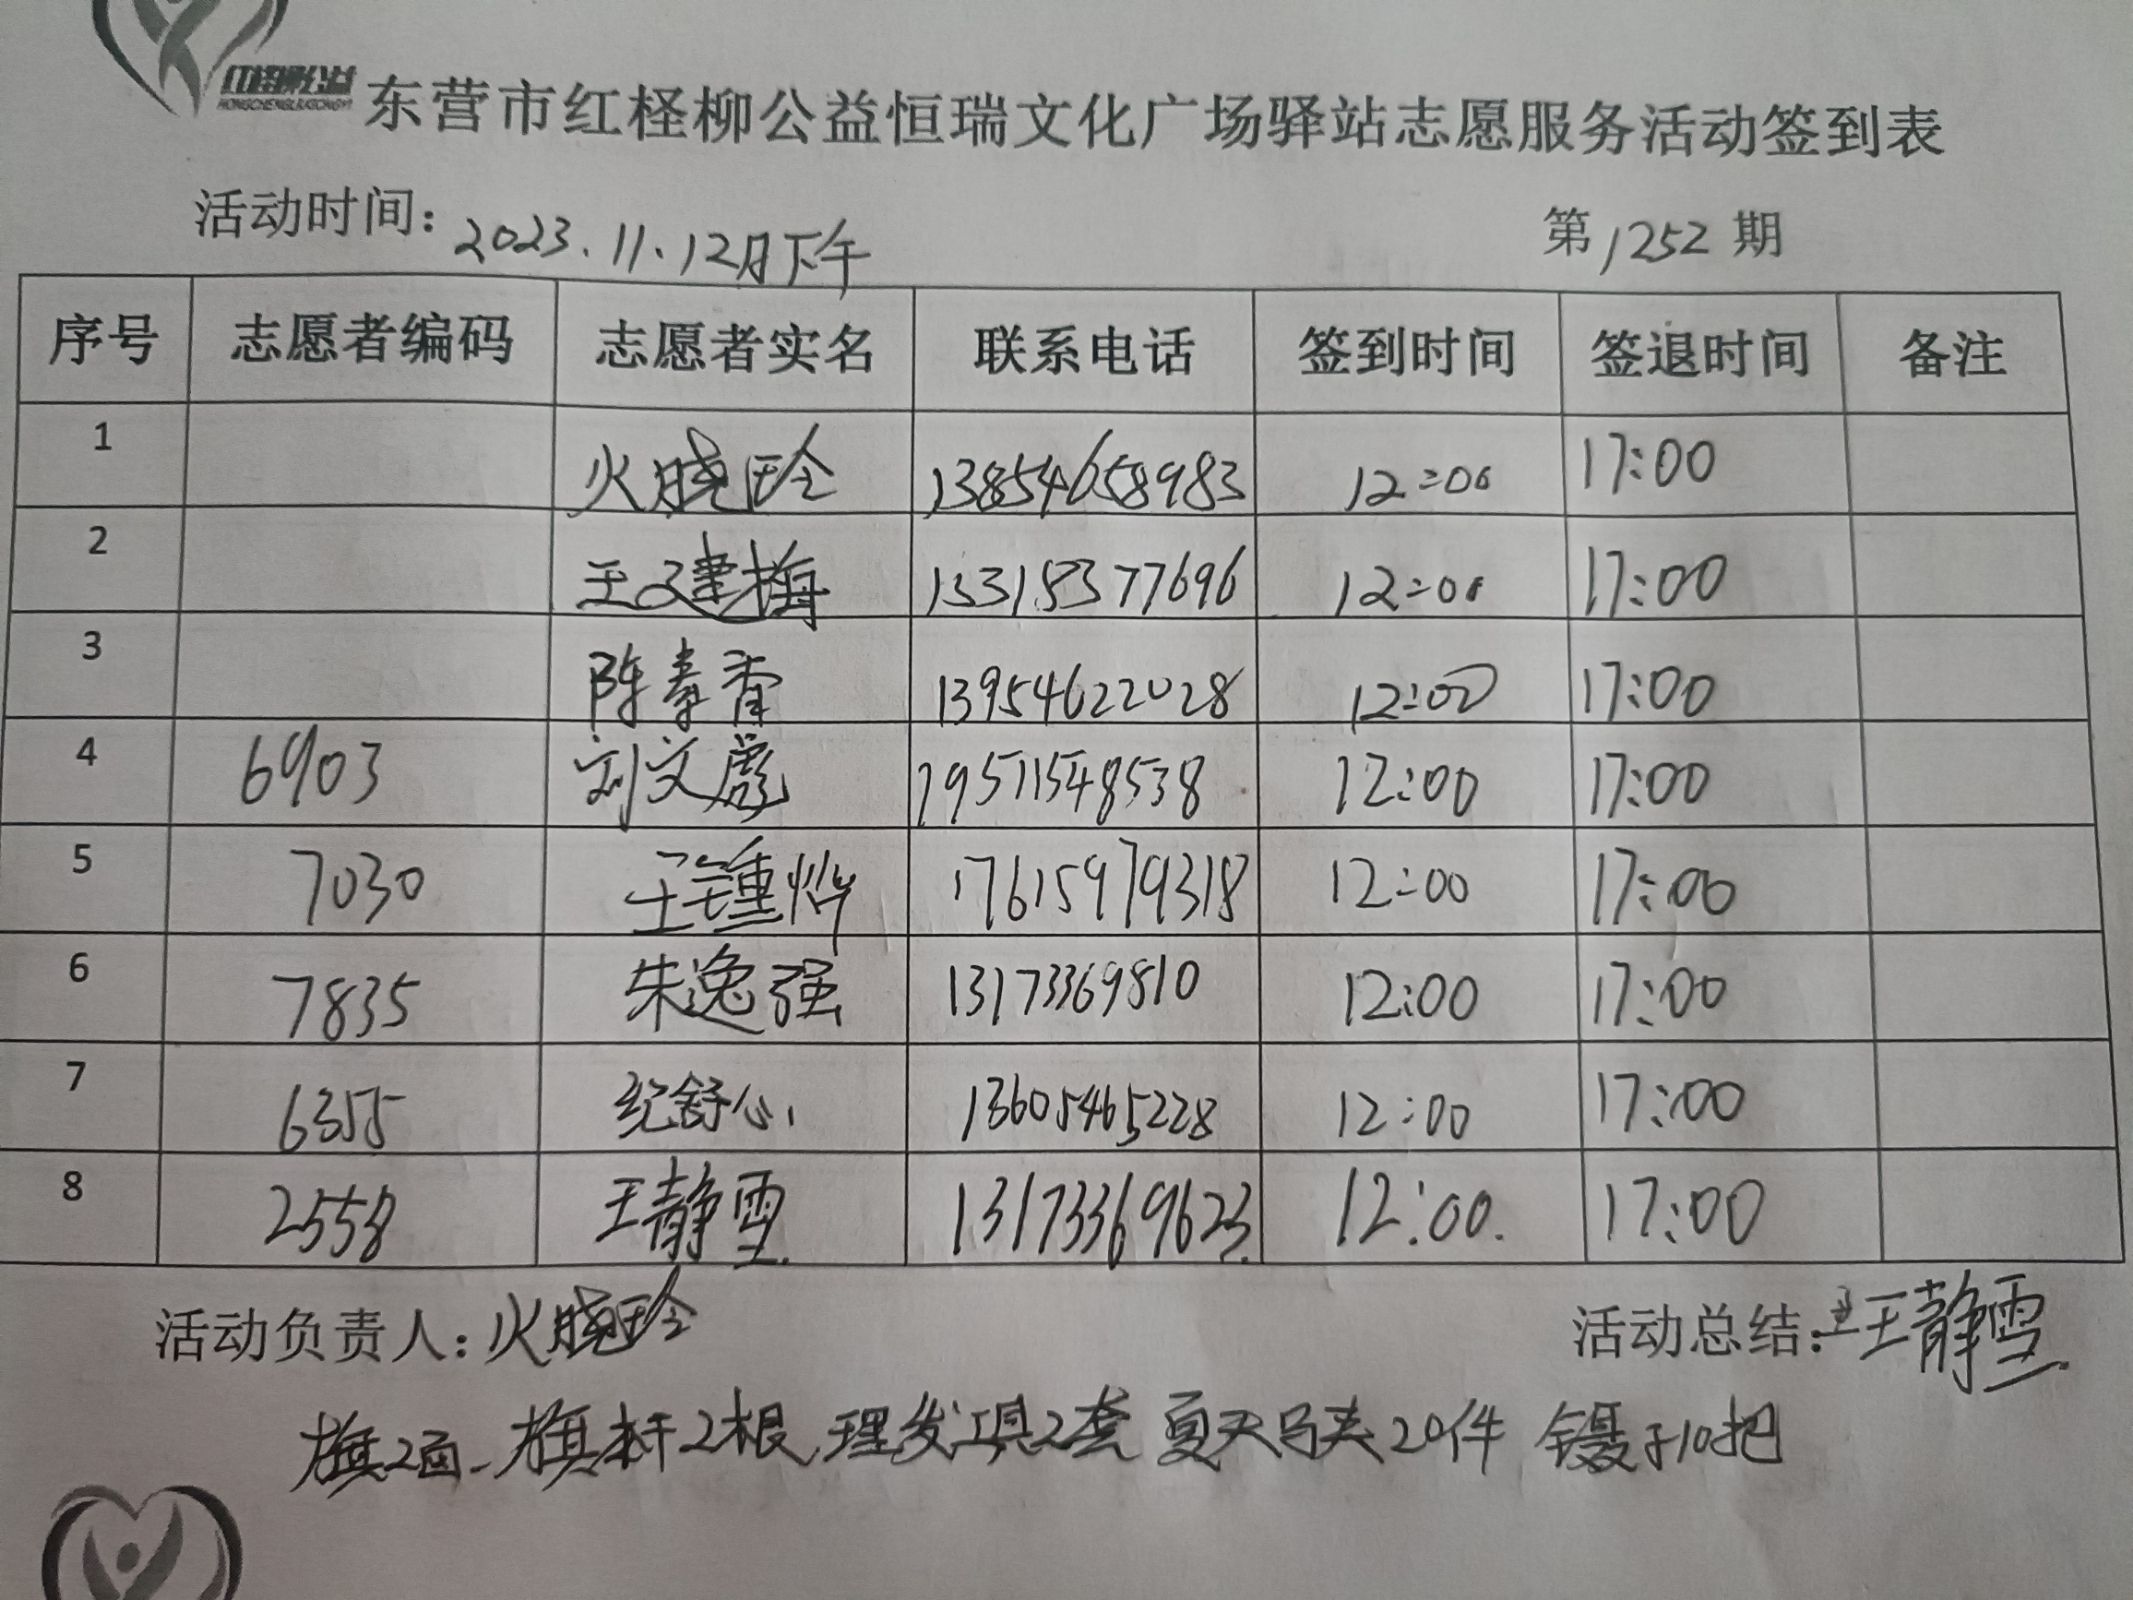 红柽柳公益
HONGCHENGLIUGONGYI
东营市红柽柳公益恒瑞文化广场驿站志愿服务活动签到表
活动时间：2023.11.12日下午 第1252期
序号 志愿者编码 志愿者实名 联系电话 签到时间 签退时间 备注
1 火晓玲 13854658983 12:00 17:00
2 王建梅 15315377696 12:00 17:00
3 陈春香 13954622028 12:00 17:00
4 6903 刘文彪 19511548538 12:00 17:00
5 7030 王 17615979318 12:00 17:00
6 7835 朱逸强 13173369810 12:00 17:00
7 6355 纪舒心 13605465228 12:00 17:00
8 2558 王静雪 13173369623 12:00. 17:00
活动负责人：火晓玲 活动总结：王静雪
旗2面、旗杆2根，理发工具2套 夏天马夹20件 镊子10把